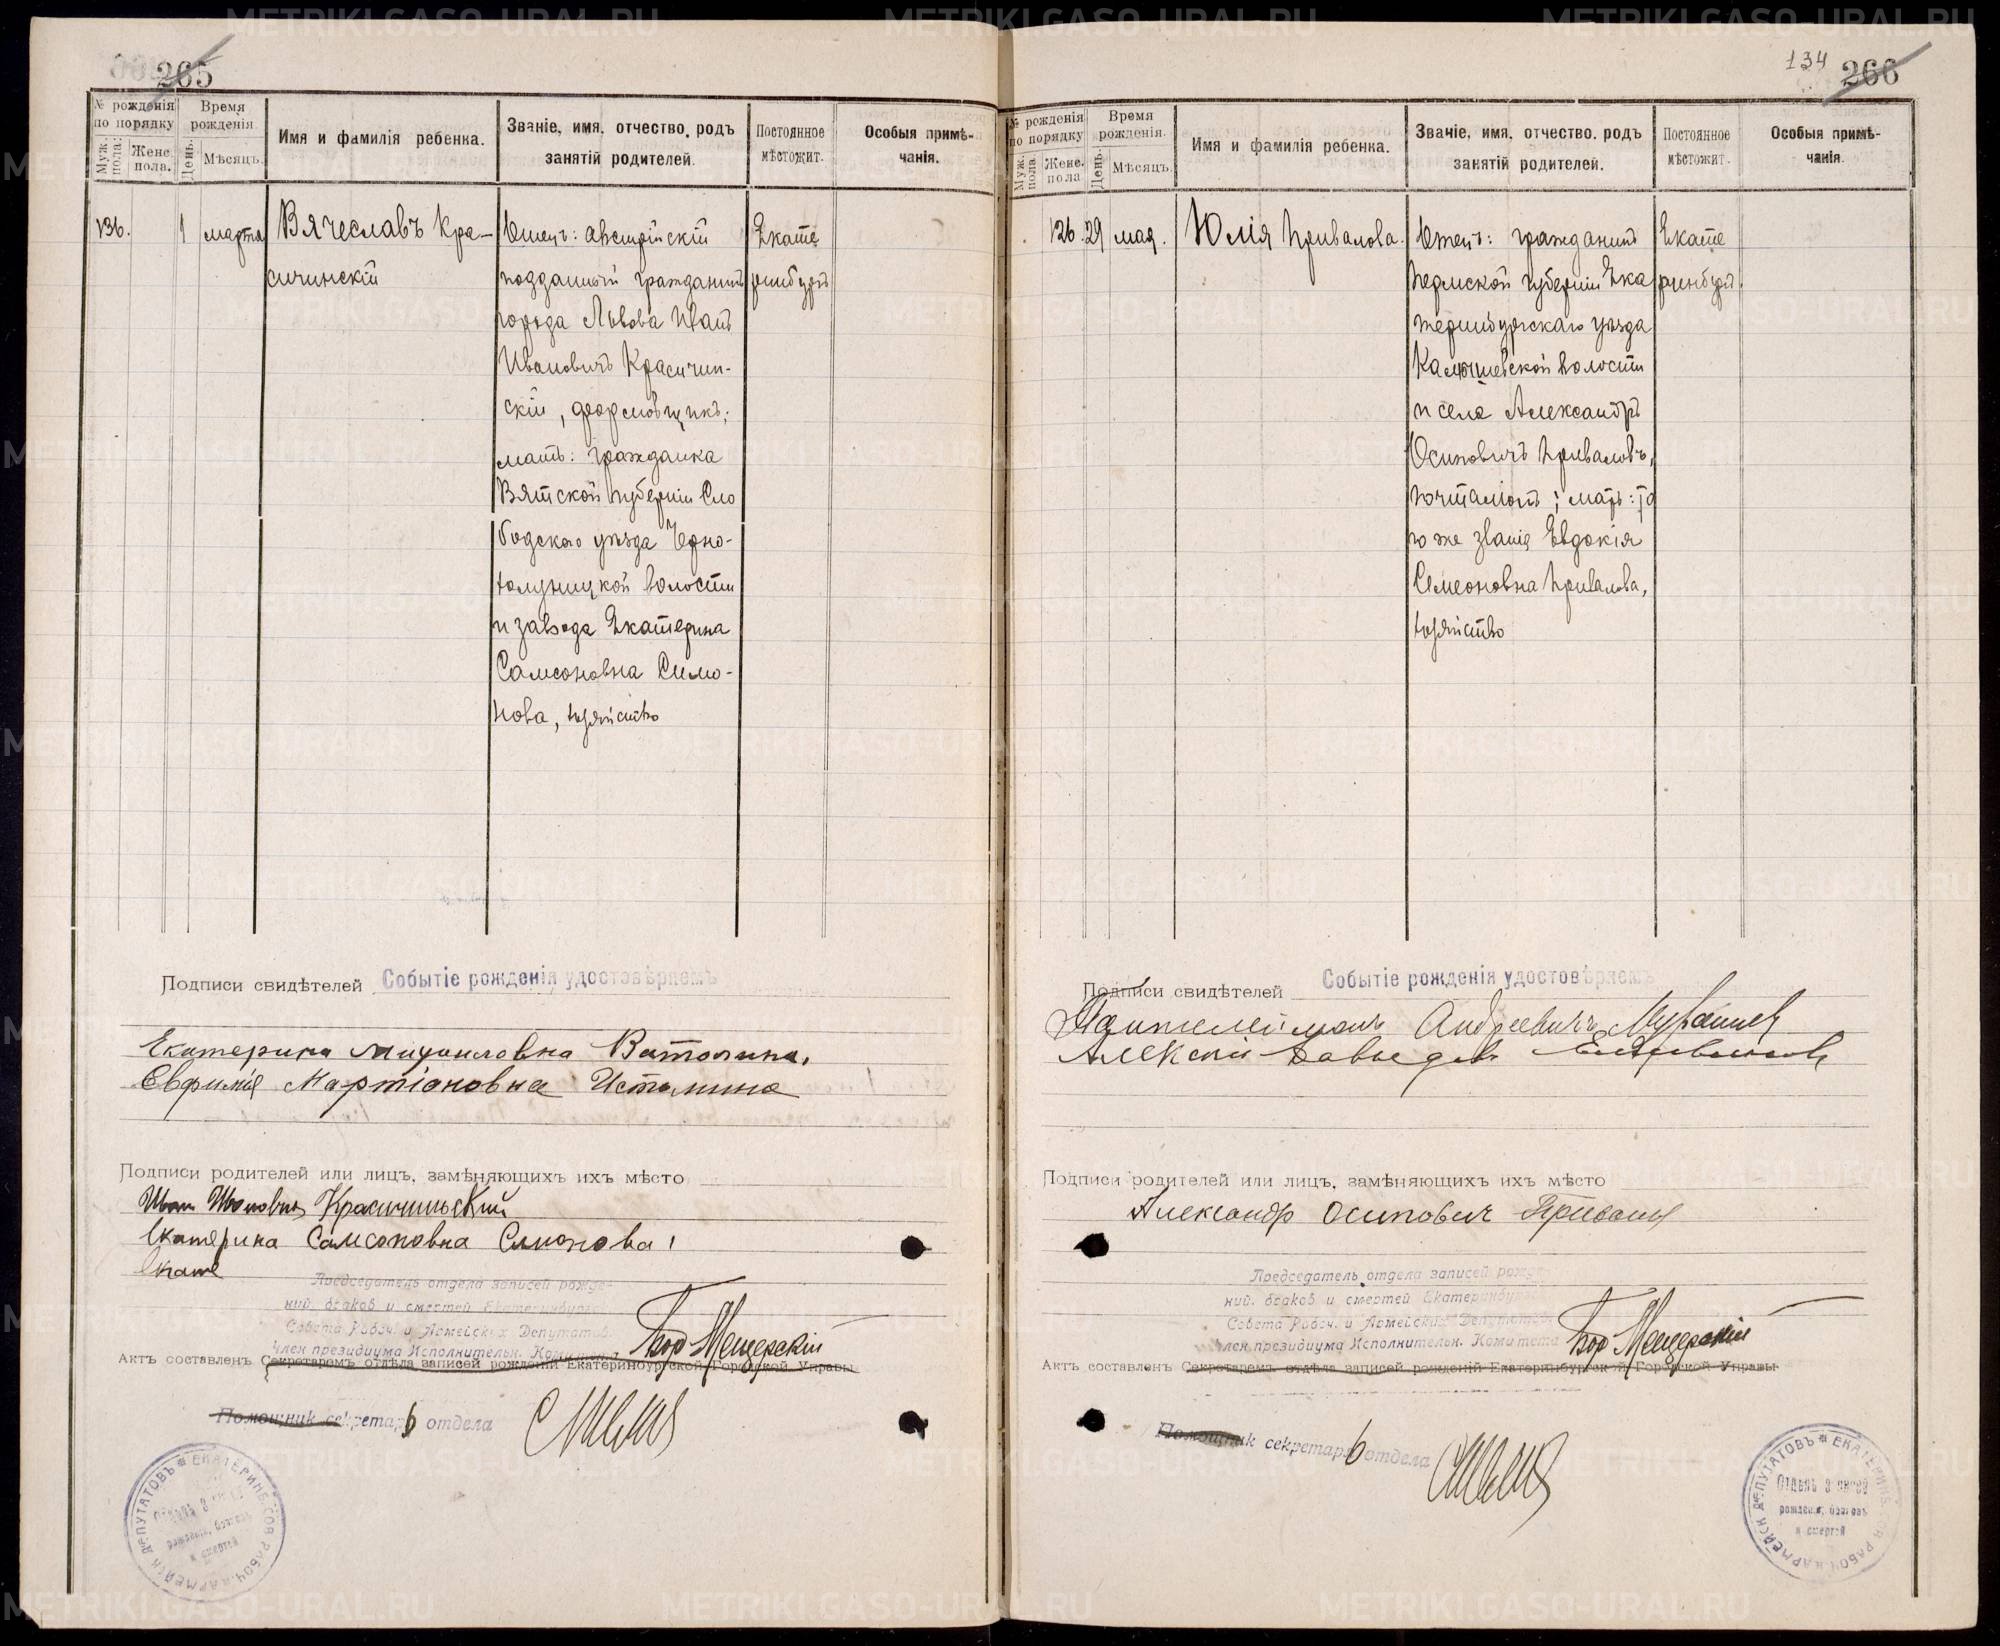 265
№ рожденія по порядку
Муж. пола.
Женс. пола.
Время рожденія
День.
Мѣсяцъ.
Имя и фамилія ребенка.
Званіе, имя, отчество, родъ
занятій родителей.
Постоянное
мѣстожит.
Особыя примѣ-
чанія.
136.
1
марта
Вячеславъ Кра-
сичинскій
Отецъ: австрійскій
подданный гражданинъ
города Львова Иванъ
Ивановичъ Красичин-
скій, формовщикъ;
мать: гражданка
Вятской губерніи Сло
бодского уѣзда Черно-
холуницкой волости
и завода Екатерина
Самсоновна Симо-
нова, хозяйство
Екате
ринбургъ
Подписи свидѣтелей Событіе рожденія удостовѣряемъ
Екатерина Михаиловна Ватолина,
Евфимія Мартіановна Истомина
Подписи родителей или лицъ, замѣняющихъ ихъ мѣсто
Иван Иванович Красичинский
Екатерина Самсоновна Симонова,
Екате
Предсѣдатель отдела записей рожде-
ний, браков и смертей Екатеринбург
Совета Рабоч. и Армейских Депутатов
Член президиума Исполнительн. Комитета
Мещерскій
Актъ составленъ Секретаремъ отдѣла записей рожденій Екатеринбургской Городской Управы
Помощник секретарь отдела
134
266
№ рожденія
по порядку
Муж. пола.
Женс. пола
Время
рожденія.
День.
Мѣсяцъ.
Имя и фамилія ребенка.
Званіе, имя, отчество, родъ
занятій родителей.
Постоянное
мѣстожит.
Особыя примѣ-
чанія.
126.
29
мая.
Юлія Привалова.
Отецъ: гражданинъ
Пермской губерніи Ека
теринбургскаго уѣзда
Камышевской волости
и села Александръ
Осиповичъ Приваловъ,
почталіонъ; мать: то
го же званія Евдокія
Семеоновна Привалова,
хозяйство
Екате
ринбургъ.
Подписи свидѣтелей Событіе рожденія удостовѣряемъ
Пантелеймонъ Андреевичъ
Алексѣй
Подписи родителей или лицъ, замѣняющихъ ихъ мѣсто
Александр Осипович Привалов
Председатель отдела записей рожде
ний, браков и смертей Екатеринбург
Совета Рабоч. и Армейских Депутатов
Член президиума Исполнительн. Комитета
Мещерскій
Актъ составленъ Секретаремъ отдѣла записей рожденій Екатеринбургской Городской Управы
Помощник секретарь отдела
METRIKI.GASO-URAL.RU